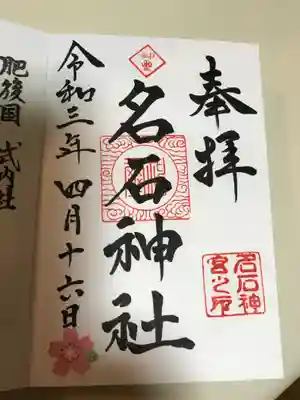 奉拝
名石神社
令和三年 四月十六日
名石神
宮之印
肥後国 式内社